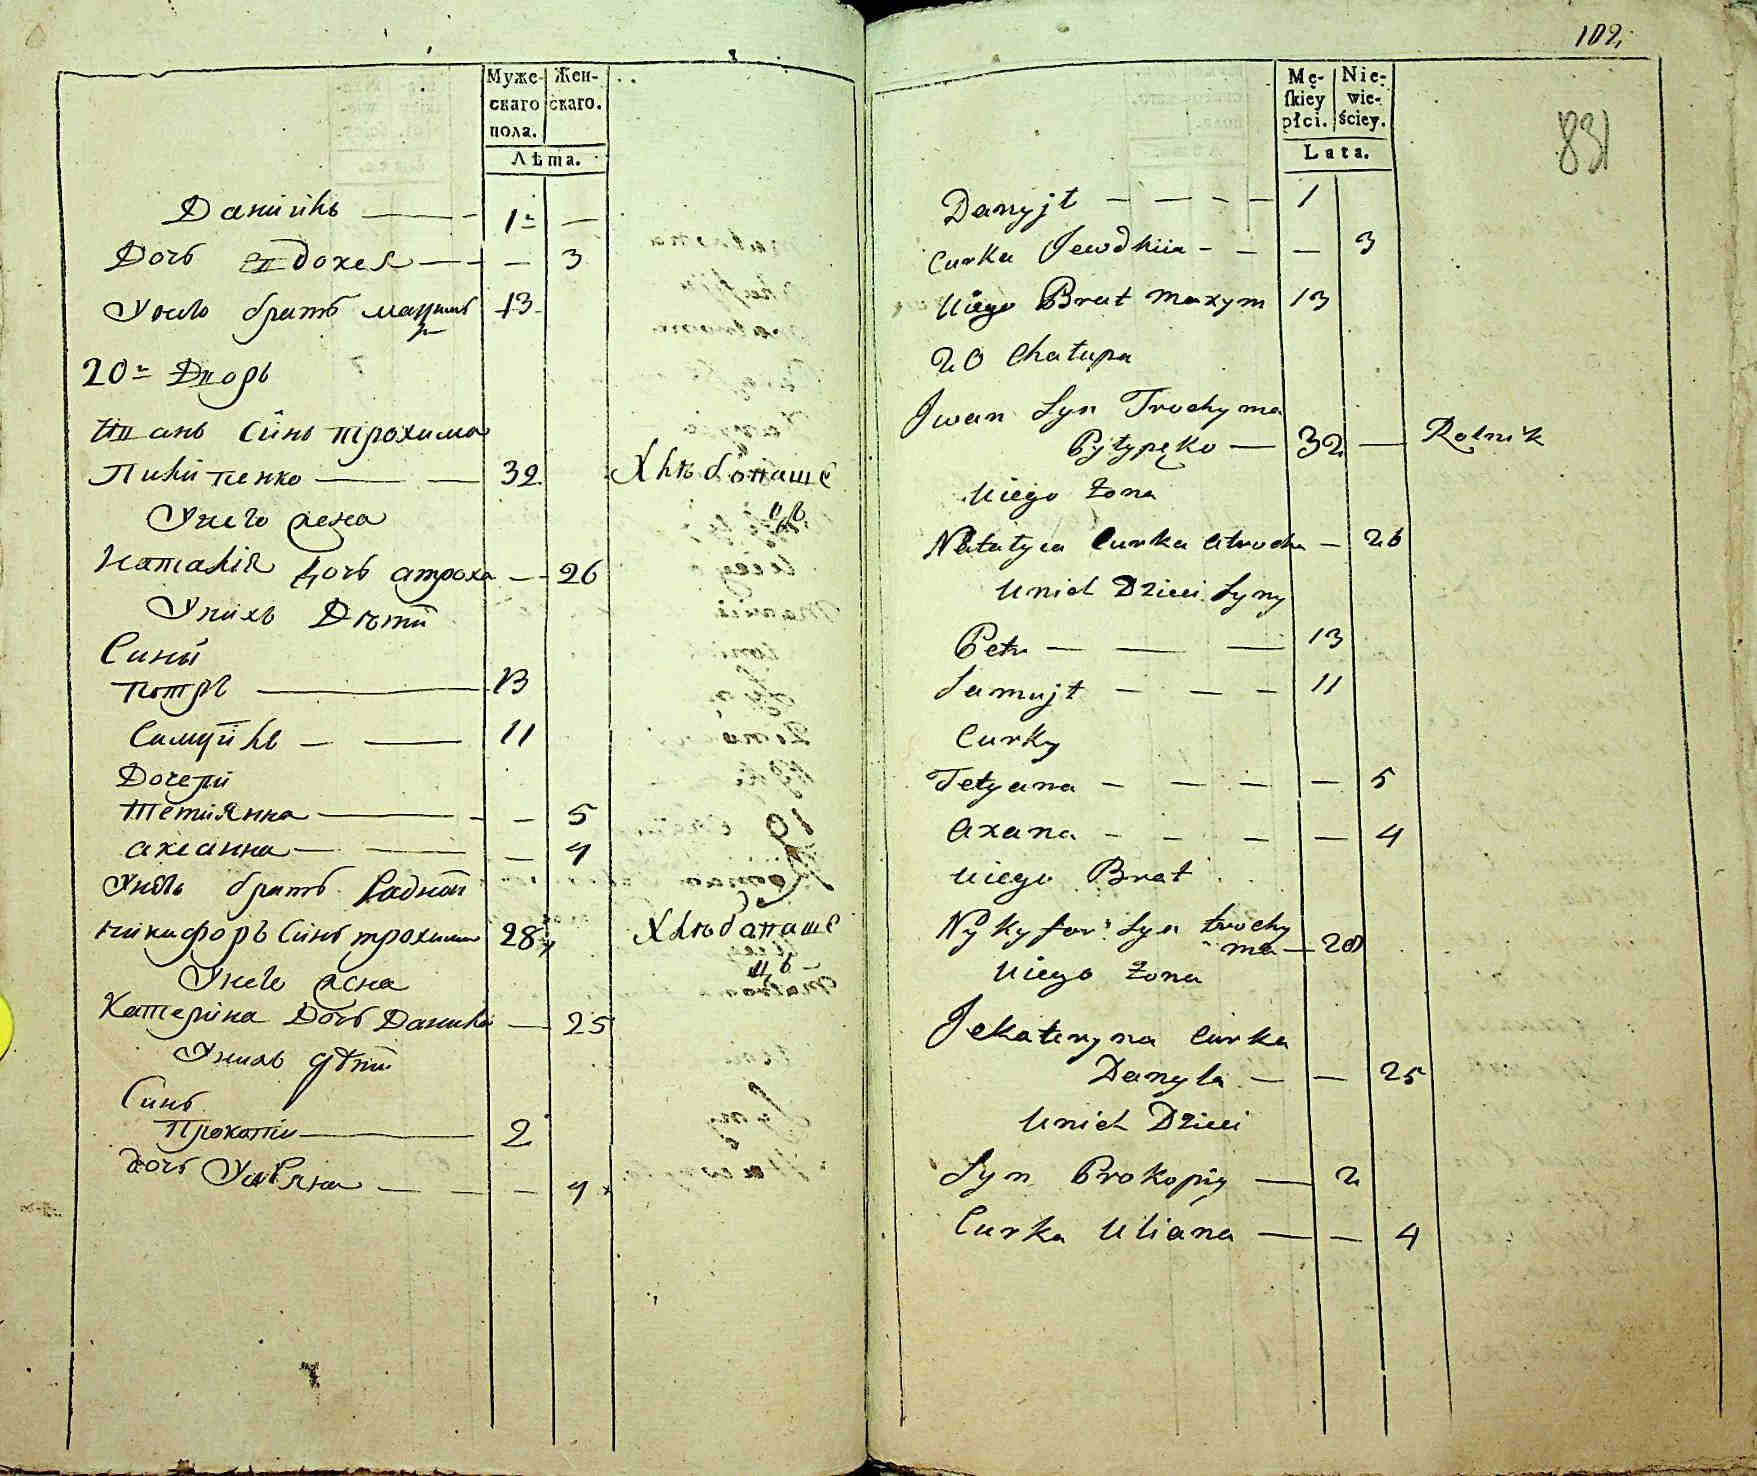 Муже-
скаго
пола.
Жен-
скаго.
Лѣта.
Даниилъ — 1 —
Дочь Евдокея — — 3
У него братъ Максимъ 13
20 Дворъ
Иванъ Синъ трохима
Пилипенко — 32 Хлѣбопаше
цъ
У него жена
Наталія дочь атроха — 26
У нихъ Дѣти
Сины
Потръ — 13
Самуйлъ — 11
Дочери
Тетиянна — — 5
аксанна — — 4
У него братъ Родной
никифоръ Синъ трохима 28 Хлѣбапаше
цъ
У него жена
Катерина Дочь Данила — 25
У нихъ дѣти
Синъ
Прокопи — 2
дочь Улияна — — 4
102
831
Mę-
skiey
płci.
Nie-
wie-
ściey.
Lata.
Danyjł — 1
Curka Jewdkiia — — 3
Uiego Brat Maxym 13
20 Chałupa
Jwan Syn Trochyma
Pyłypęko — 32 — Rolnik
Uiego Żona
Natałyia Curka Atrocha — 26
Unich Dzieci Syny
Petr — 13
Samujł — 11
Curky
Tetyana — — 5
Axana — — 4
Uiego Brat
Nykyfor Syn trochy
ma — 28
Uiego Żona
Jekateryna Curka
Danyła — — 25
Unich Dzieci
Syn Prokopiy — 2
Curka Uliana — — 4